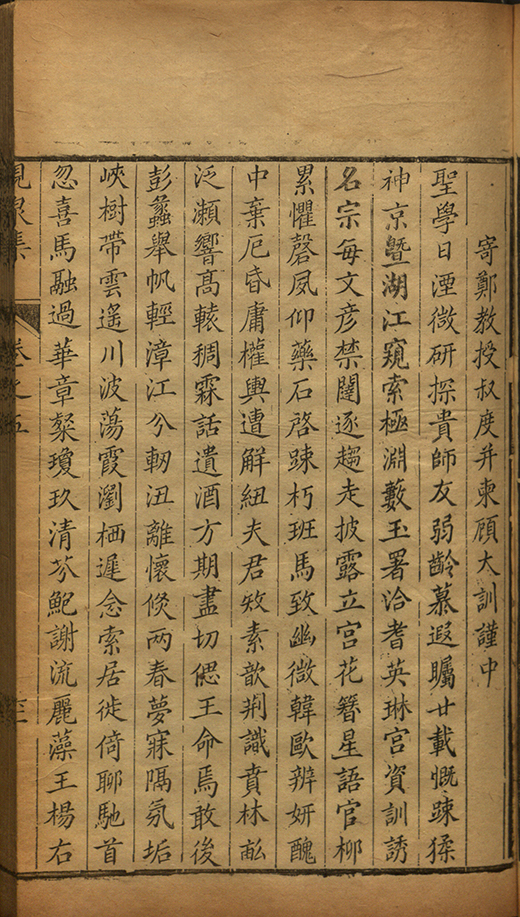 寄鄭教授叔度并柬顧太訓謹中
聖學日湮微研探貴師友弱齡慕遐矚廿載慨踈猱
神京暨湖江窺索極淵藪玉署洽耆英琳宮資訓誘
名宗每文彦禁闥逐趨走披露立宮花簪星語官柳
累懼磬夙仰藥石啓踈朽班馬致幽微韓歐辨妍醜
中棄卮昏庸權輿遭解紐夫君敉素歆荆識賁林畝
泛瀨響髙轅稠霖話遺酒方期盡切偲王命焉敢後
彭蠡舉帆輕漳江兮軔沑離懷倏两春夢寐隔氛垢
峽樹帶雲遙川波蕩霞瀏栖遲念索居徙倚聊馳首
忽喜馬融過華章粲瓊玖清芬鮑謝流麗藻王楊右
峴泉集
卷之五